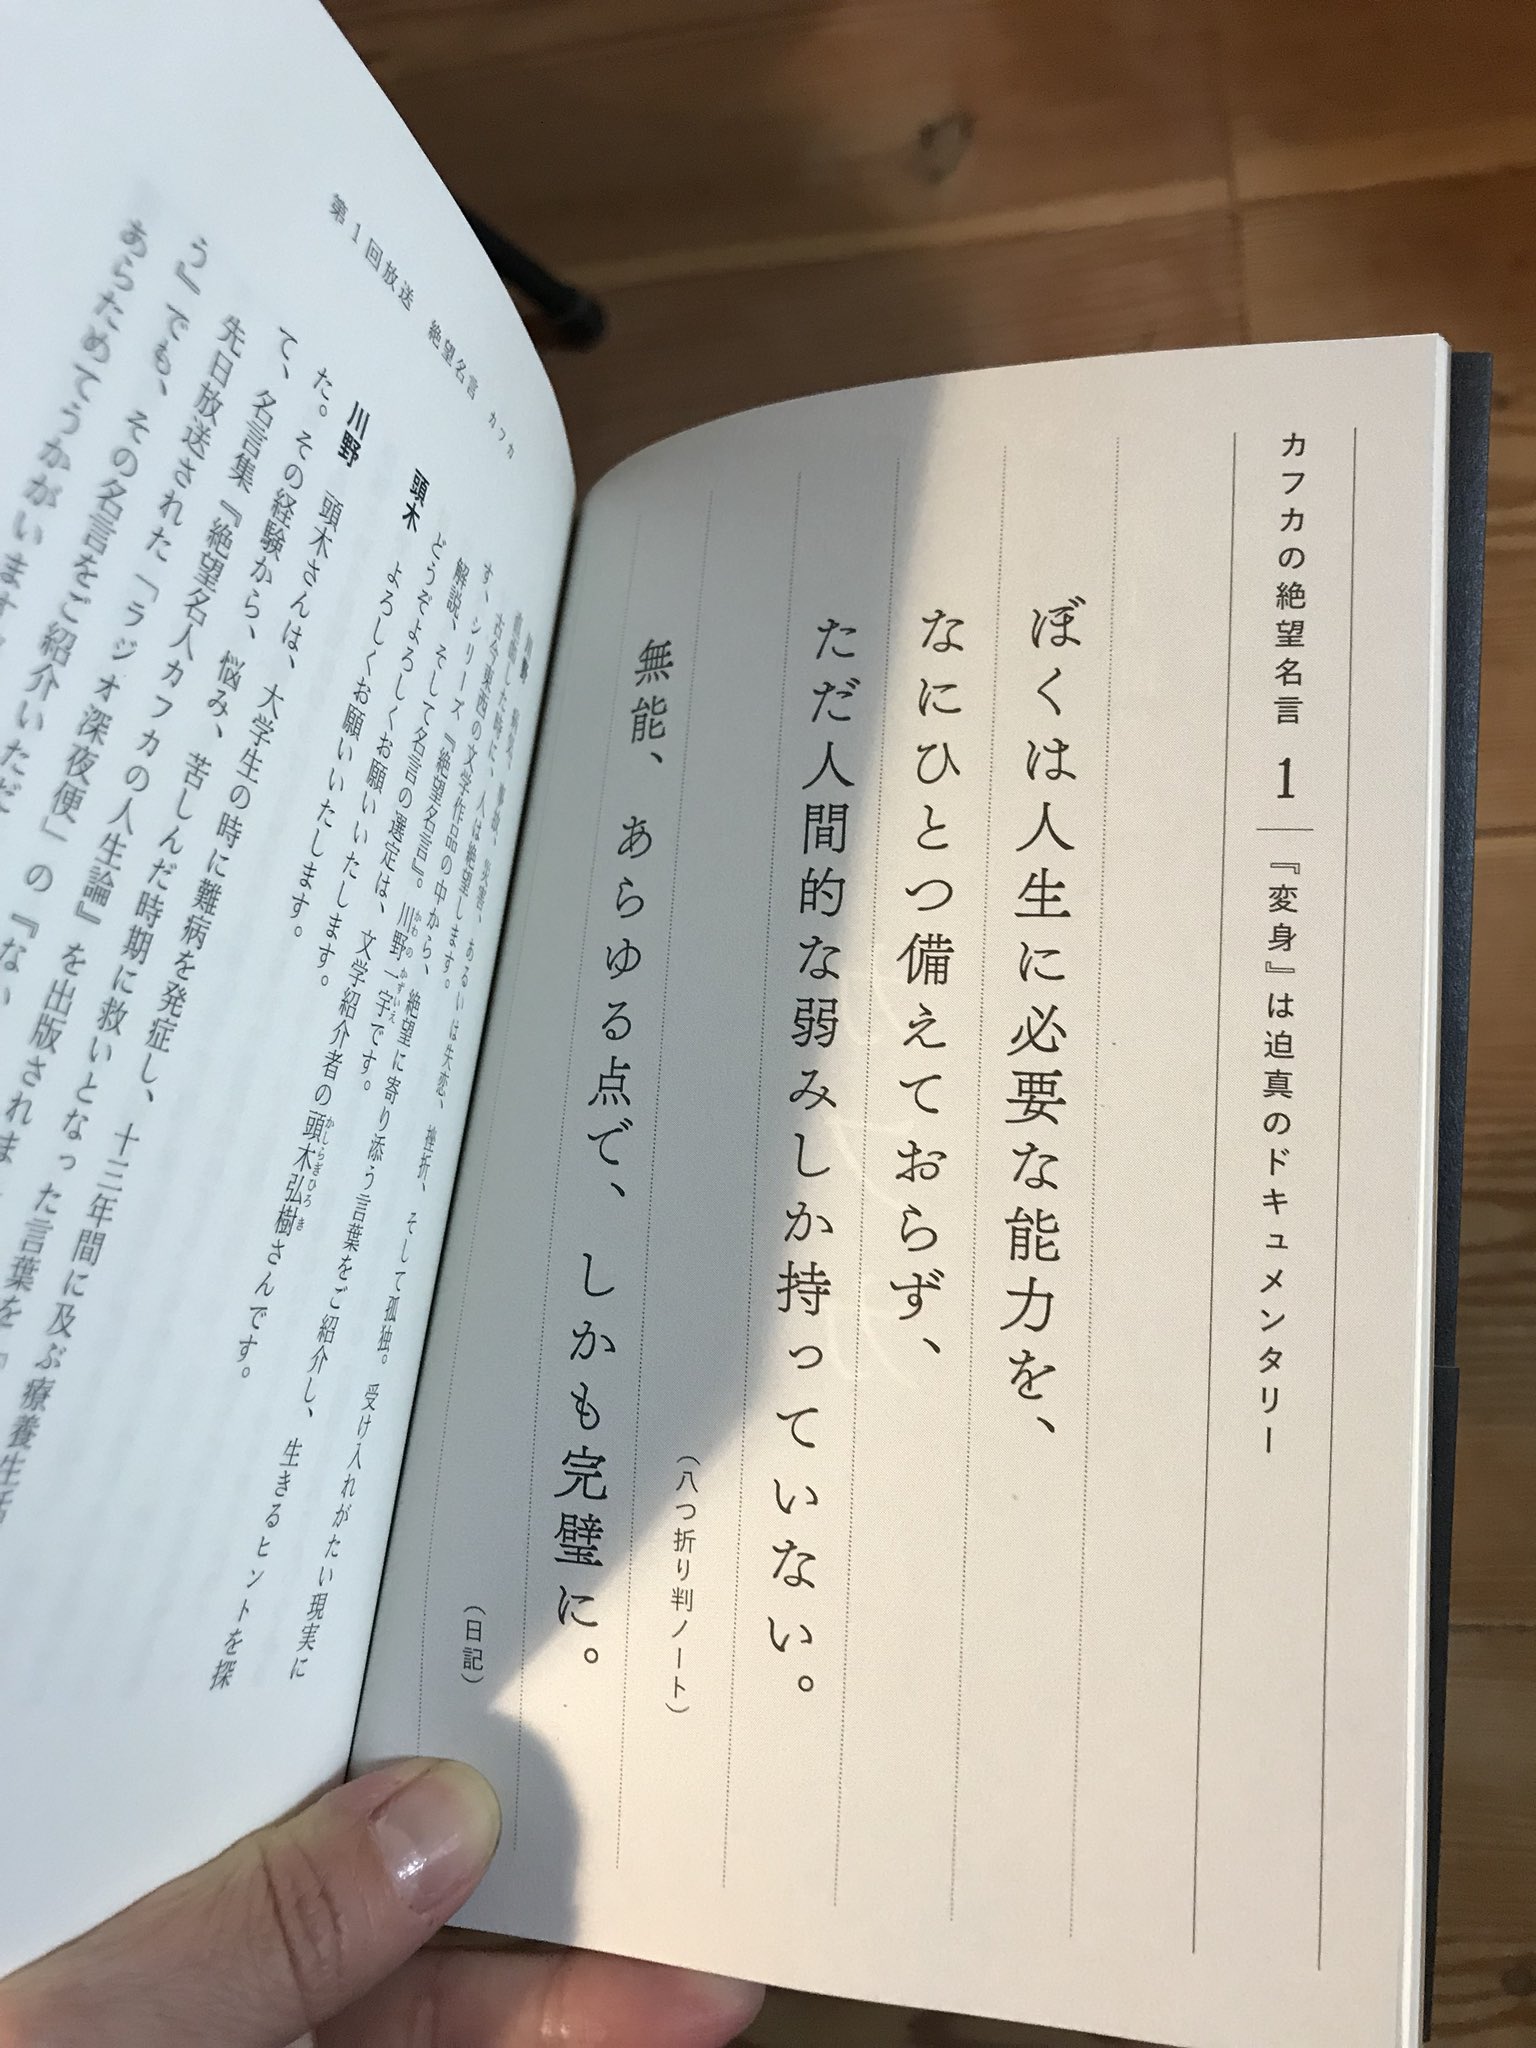 カフカの絶望名言 1 『変身』は迫真のドキュメンタリー
ぼくは人生に必要な能力を、
なにひとつ備えておらず、
ただ人間的な弱みしか持っていない。
（八つ折り判ノート）
無能、あらゆる点で、しかも完璧に。
（日記）
第1回放送 絶望名言 カフカ
川野 病気、事故、災害、あるいは失恋、挫折、そして孤独。受け入れがたい現実に
直面した時に、人は絶望します。
古今東西の文学作品の中から、絶望に寄り添う言葉をご紹介し、生きるヒントを探
す、シリーズ『絶望名言』。川野一宇です。
解説、そして名言の選定は、文学紹介者の頭木弘樹さんです。
どうぞよろしくお願いいたします。
頭木 よろしくお願いいたします。
川野 頭木さんは、大学生の時に難病を発症し、十三年間に及ぶ療養生活
た。その経験から、悩み、苦しんだ時期に救いとなった言葉を『
て、名言集『絶望名人カフカの人生論』を出版されま
先日放送された「ラジオ深夜便」の『ない
う』でも、その名言をご紹介いただ
あらためてうかがいます